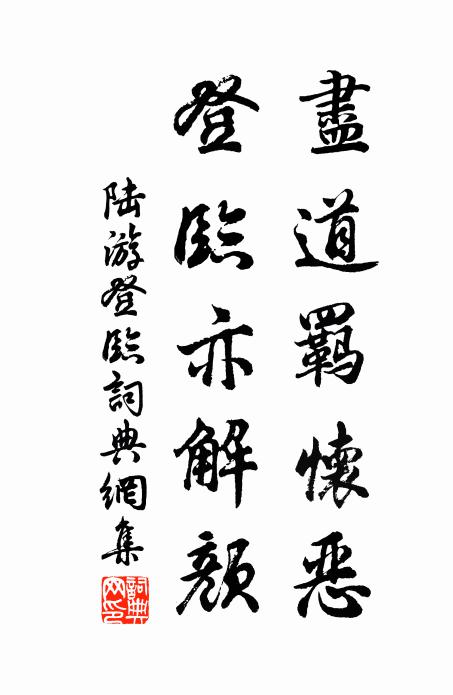 盡道羇懷惡
登臨亦解顏
陸游登臨詞典網集
詞典網印